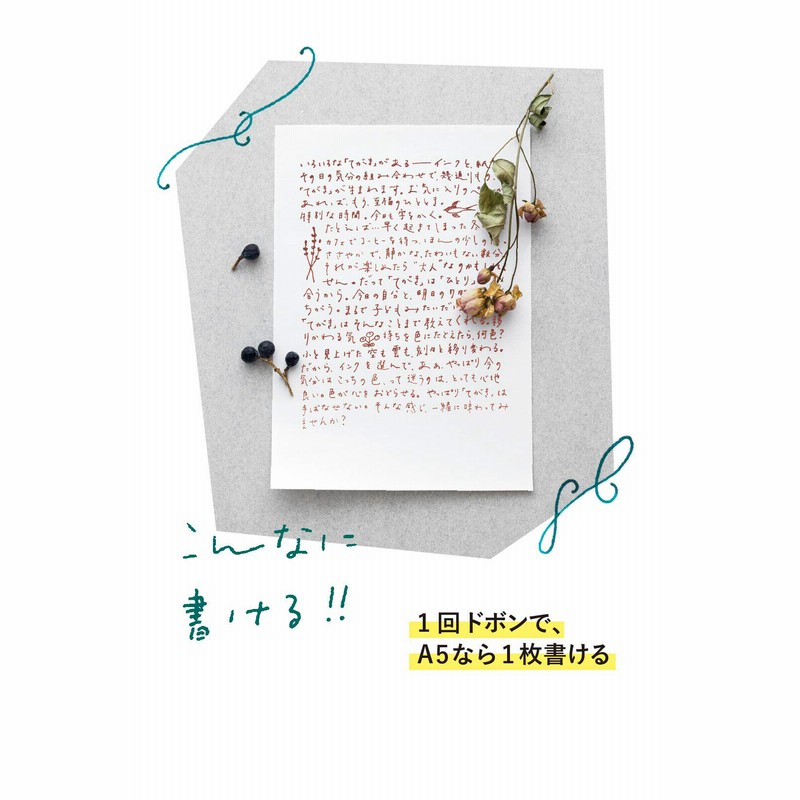 いろいろな「てがき」がある――インクと、紙
その日の気分の組み合わせで、幾通りもの
「てがき」が生まれます。お気に入りのペン
あれば、もう、至福のひととき。
特別な時間。今日も字をかく。
たとえば…早く起きてしまった
カフェでコーヒーを待つ、ほんの少しの
ささやかで、静かな、たわいもない数分
それが楽しめたら“大人”なのかもし
せん。だって「てがき」は「ひとり」
合うから。今日の自分と、明日の
ちがう。まるで子どもみたいだ
「てがき」はそんなことまで教えてくれる。移
りかわる気持ちを色にたとえたら、何色?
ふと見上げた空も雲も、刻々と移り変わる。
だから、インクを選んで、ああ、やっぱり今の
気分はこっちの色、って迷うのは、とっても心地
良い。色が心をおどらせる。やっぱり「てがき」は
手ばなせない。そんな感じ、一緒に味わってみ
ませんか?
こんなに
書ける!!
1回ドボンで、
A5なら1枚書ける